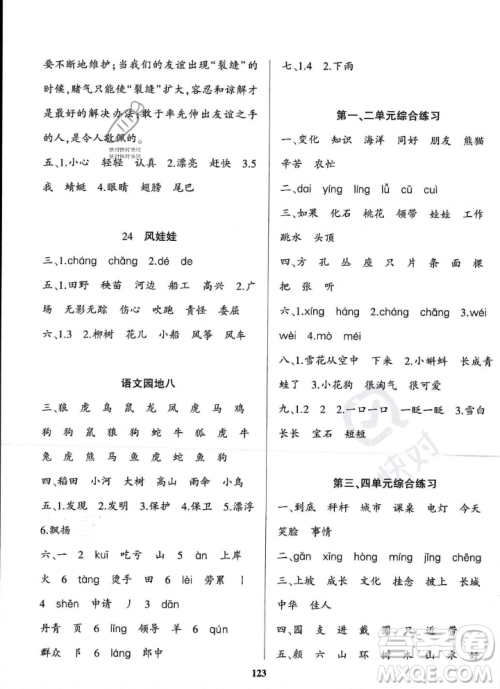 要不断地维护;当我们的友谊出现“裂缝”的
时候,赌气只能让“裂缝”扩大,宽容和谅解才
是最好的解决办法;敢于率先伸出友谊之手
的人,是令人敬佩的。
五、1.小心 轻轻 认真 2.漂亮 赶快 3.5
我 蜻蜓 4.眼睛 翅膀 尾巴
24 风娃娃
三、1.cháng chǎng 2.dé de
四、1.田野 秧苗 河边 船工 高兴 2.广
场 无影无踪 伤心 吹跑 责怪 委屈
六、1.3 2.柳树 花儿 小船 风筝 风车
语文园地八
三、狼 虎 鸟 鼠 龙 凤 虎 马 鸡
狗 狗 鼠 狐 狗 蛇 牛 狐 虎
兔 虎 虎 熊 虎 马 虎 蛇 鸟
四、稻田 小河 大树 雨伞 小鸟
五、1.发现 2.发明 3.保护 4.保卫 5.漂浮
6.飘扬
六、一 2 kuī 吃亏 山 5 àn 上岸
火 6 tàng 烫手 田 6 lèi 劳累 丨
4 shēn 申请 丿 3 dān
丹青 页 6 lǐng 带领 羊 6 qún
群众 月 6 láng 郎中
七、1.4 2.下雨
第一、二单元综合练习
一、变化 知识 海洋 同好 朋友 熊猫
辛苦 农忙
二、dai yíng líng dù cū cuì
三、如果 化石 桃花 领带 娃娃 工作
跳水 头顶
四、方 孔 丛 座 只 片 面
把 张 听
六、1.xíng háng 2.cháng zhǎng 3.wéi
wèi 4.mò méi
八、1.雪花从空中 下来 2.小蝌蚪 长成青
蛙了 3.小花狗 很淘气 小花狗
九、1.2 2.一口一口 一眨一眨 3.雪白
长长 宝石 短短
第三、四单元综合练习
一、岛 秤杆 城市 课桌 电灯 今天
笑脸 事情
二、gān xīng hòng míng jīng chēng
三、上坡 成为 文化 挂念 披上 城市
中华 佳人
四、圆 支 进 戴 闪 近 带
五、颜 六 山 环 树 木 山 水
123